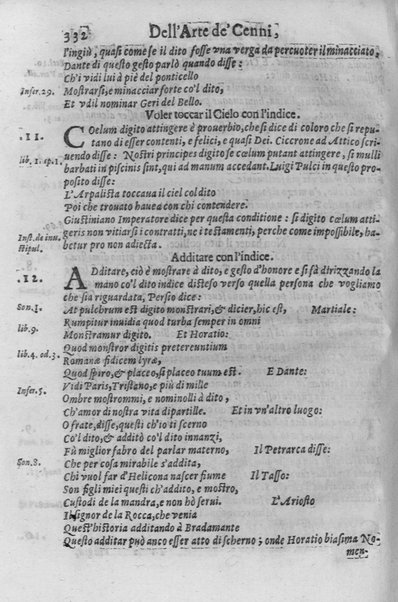 332 Dell'Arte de' Cenni,
l'ingiù, quasi come se il dito fosse una verga da percuoter il minacciato,
Dante di questo gesto parlò quando disse :
Ch'i vidi lui à piè del ponticello
Infer. 29. Mostrarsi, e minacciar forte co'l dito,
Et vdil nominar Geri del Bello.
Voler toccar il Cielo con l'indice.
.11. COelum digito attingere è prouerbio, che si dice di coloro che si repu-
tano di esser contenti, e felici, e quasi Dei. Cicerone ad Attico scri-
lib. 1. ep. 1. uendo disse : Nostri principes digito se cœlum putant attingere, si mulli
barbati in piscinis sint, qui ad manum accedant. Luigi Pulci in questo pro-
posito disse:
L'Arpalista toccaua il ciel col dito
Poi che trouato hauea con chi contendere.
Giustiniano Imperatore dice per questa conditione : si digito cœlum atti-
Inst. de inu. geris non vitiarsi i contratti, ne i testamenti, perche come impossibile, ha-
stipul. betur pro non adiecta.
Additare con l'indice.
.12. ADditare, ciò è mostrare à dito, e gesto d'honore e si fà dirizzando la
mano co'l dito indice disteso verso quella persona che vogliamo
che sia riguardata, Persio dice :
Sat. 1. At pulchrum est digito monstrari, & dicier, hic est, Martiale :
Rumpitur inuidia quod turba semper in omni
lib. 9. Monstramur digito. Et Horatio:
Quod monstror digitis pretereuntium
lib. 4. od. 3. Romanæ fidicem lyræ,
Quod spiro, & placeo, si placeo tuum est. E Dante:
Infer. 5. Vidi Paris, Tristano, e più di mille
Ombre mostrommi, e nominolli à dito,
Ch'amor di nostra vita dipartille. Et in vn'altro luogo:
O frate, disse, questi ch'io ti scerno
Co'l dito, & additò co'l dito innanzi,
Fù miglior fabro del parlar materno, Il Petrarca disse:
Son. 8. Che per cosa mirabile s'addita,
Chi vuol far d'Helicona nascer fiume Il Tasso:
Son figli miei questi ch'addito, e mostro,
Custodi de la mandra, e non hò serui. L'Ariosto
Il signor de la Rocca, che venia
Quest'historia additando à Bradamante
Questo additar può anco esser atto di scherno ; onde Horatio biasima No-
men-